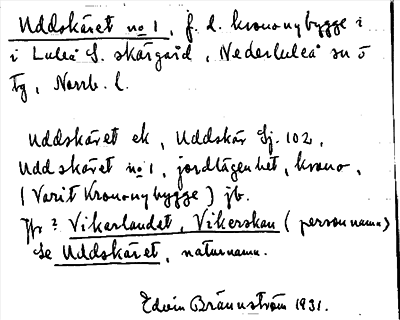 Uddskäret no 1, f. d. krononybygge i
i Luleå S. skärgård, Nederluleå sn o
tg, Norrb. l.
Uddskäret ek, Uddskär Gj. 102,
Uddskäret no 1, jordlägenhet, krono,
(Varit Krononybygge) jb.
Jfr ? Vikarlandet, Vikerskan (personnamn)
Se Uddskäret, naturnamn.
Edvin Brännström 1931.